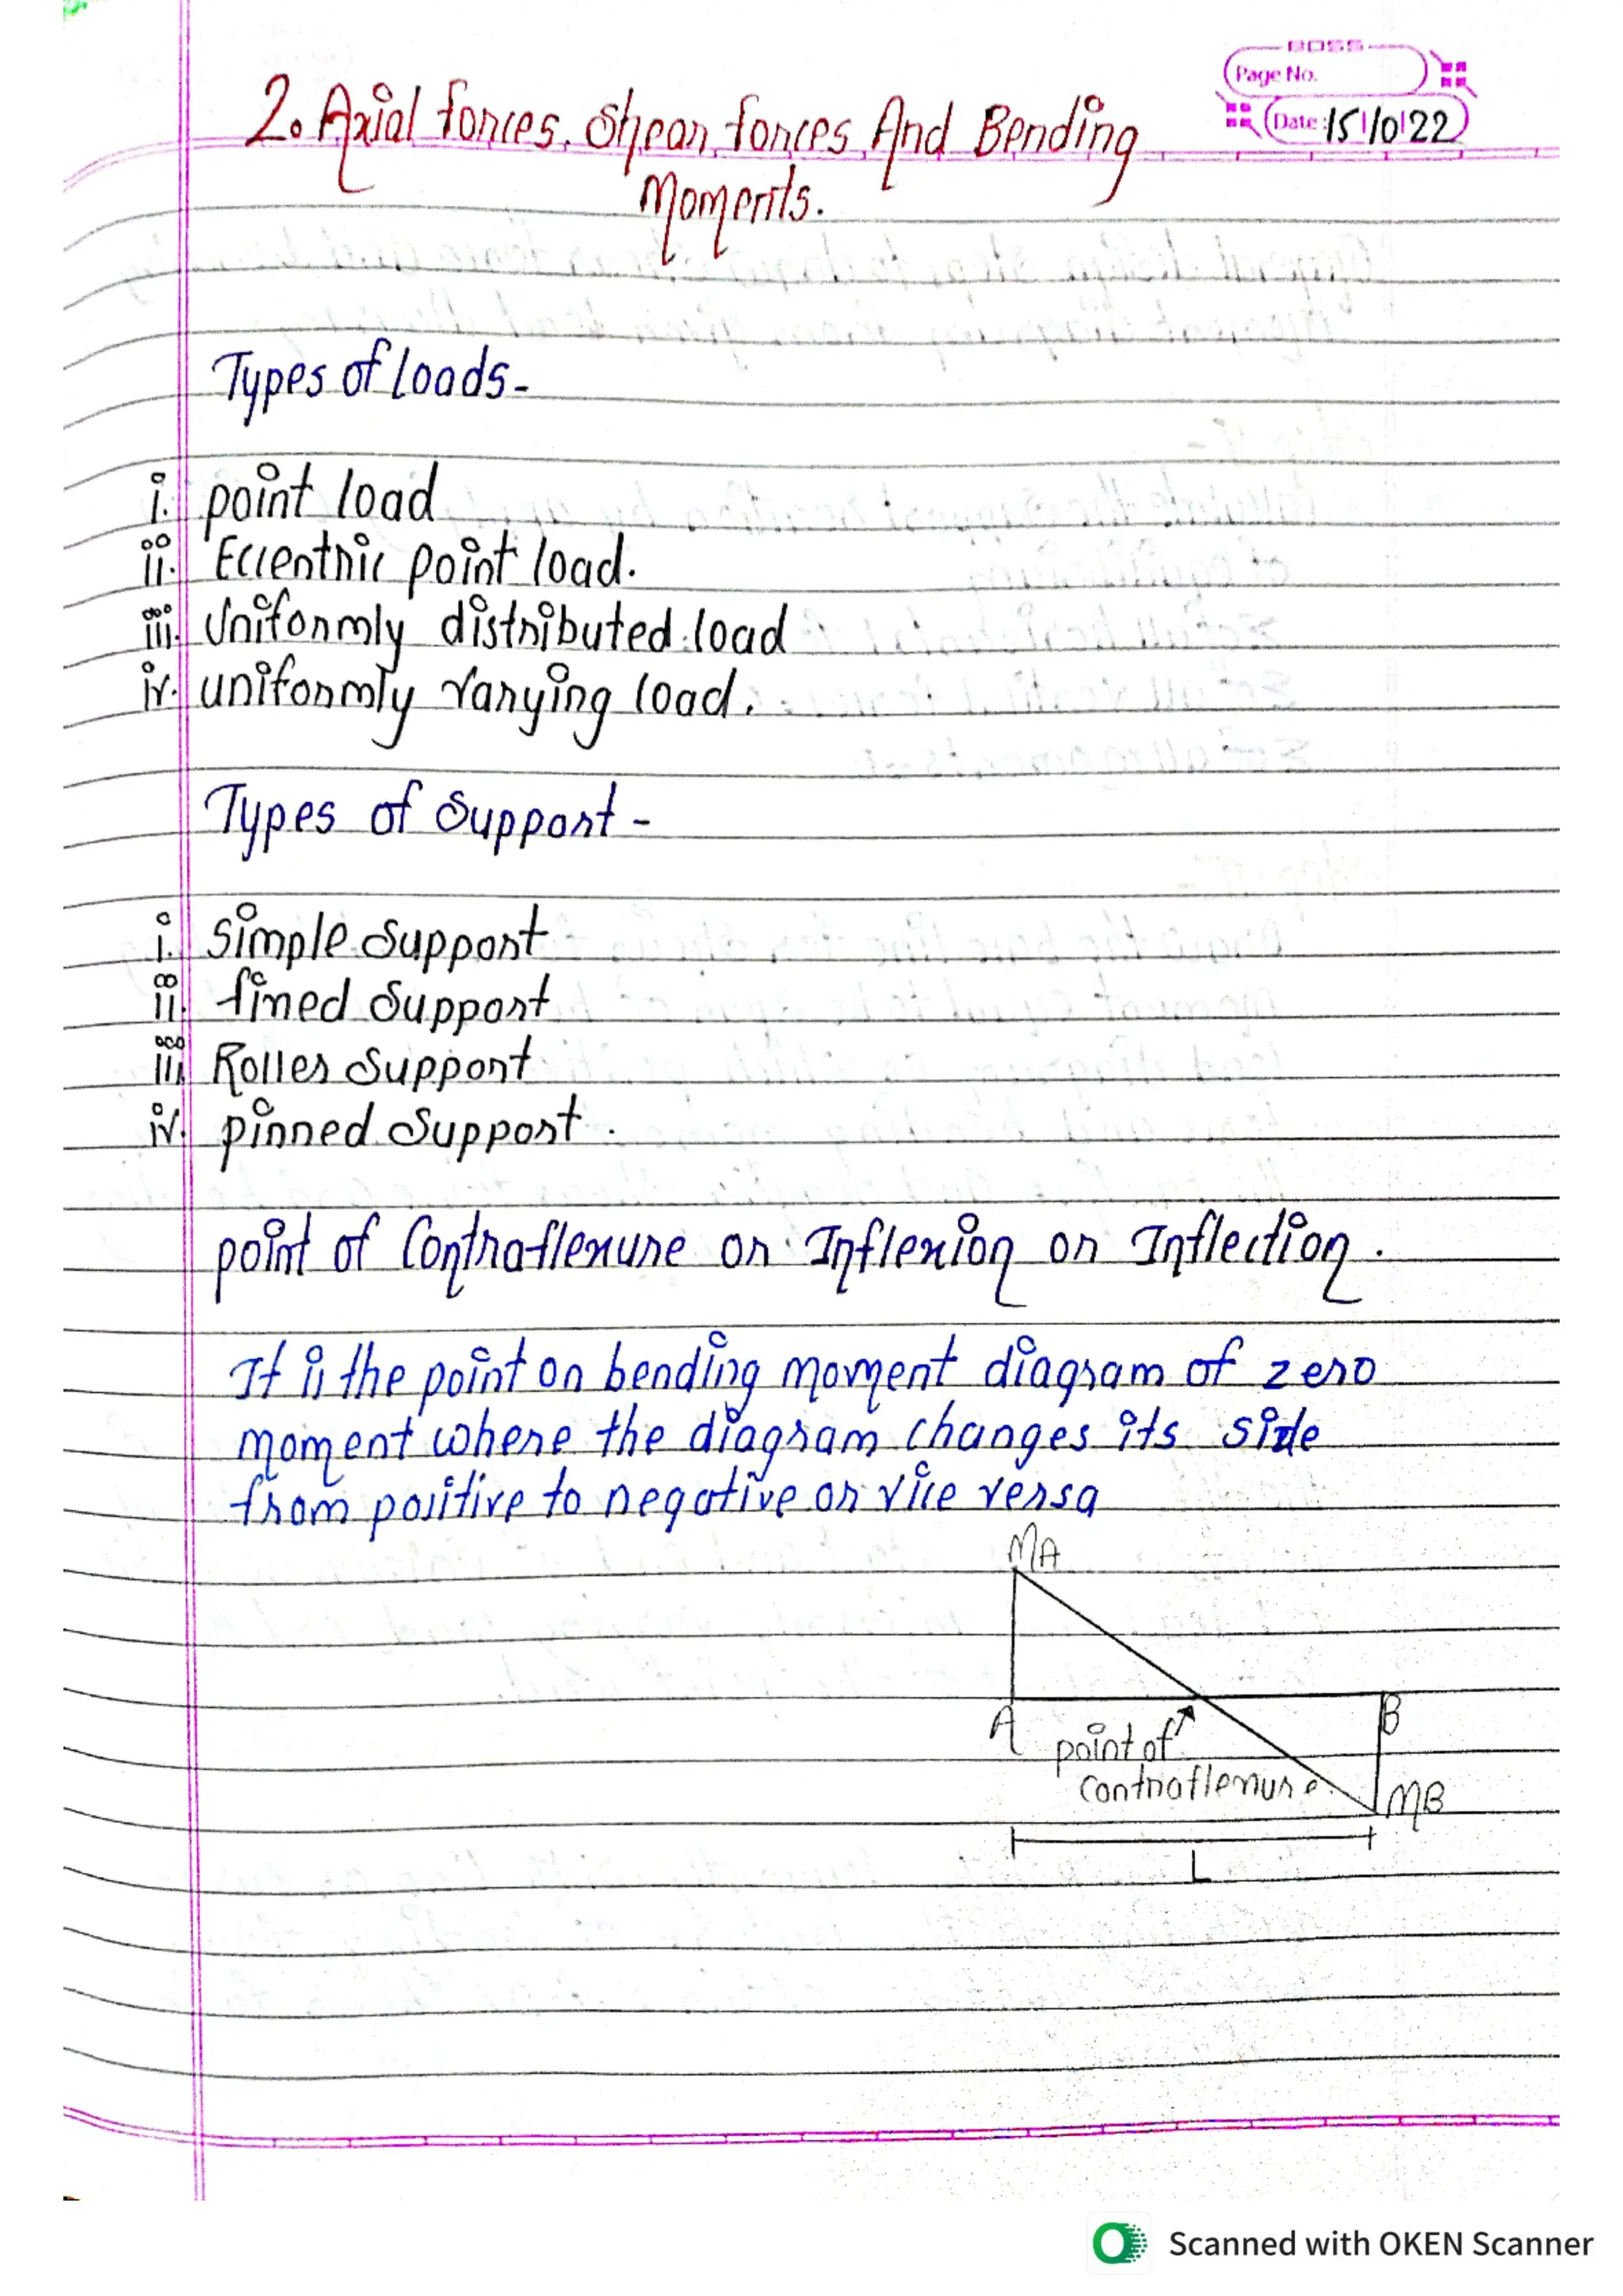 BOSS
Page No.
Date: 15/10/22
2. Axial forces, Shear forces And Bending
Moments.
Types of loads-
i. point load
ii. Eccentric point load.
iii. Uniformly distributed load
iv. uniformly varying load.
Types of Support-
i. Simple Support
ii. fixed Support
iii. Roller Support
iv. pinned Support.
point of Contraflexure or Inflexion or Inflection.
It is the point on bending moment diagram of zero
moment where the diagram changes its side
from positive to negative or vice versa
MA
A
B
point of
contraflexure
MB
L
Scanned with OKEN Scanner